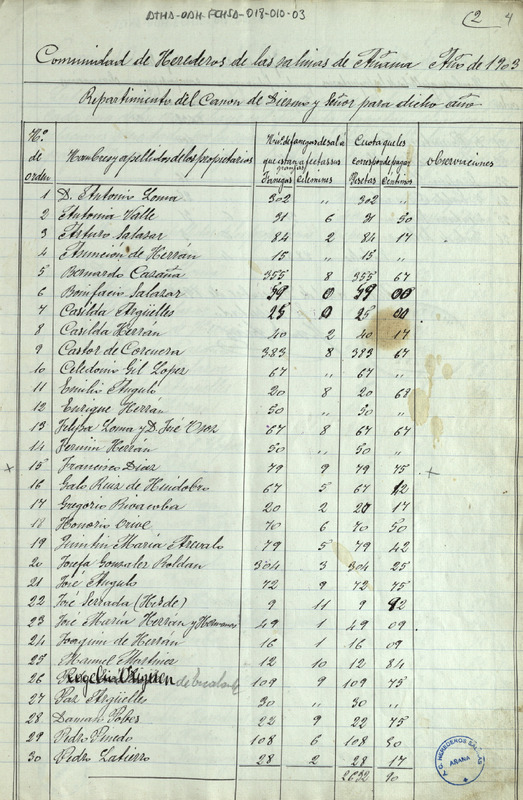 ATHA-DAH-FCHSA-018-010-03
(2 4
Comunidad de Herederos de las salinas de Añana Año de 1903
Repartimiento del Canon de Diezmo y Señor para dicho año
Nº de orden Nombres y apellidos de los propietarios Núm. de fanegas de sal á que están afectas sus granjas Fanegas Celemines Cuota que les corresponde pagar Pesetas Céntimos Observaciones
1 D. Antonio Loma 302 " 302 "
2 Antonia Valle 31 6 31 50
3 Arturo Salazar 84 2 84 17
4 Asunción de Herrán 15 " 15 "
5 Bernardo Cazaña 355 8 355 67
6 Bonifacio Salazar 59 0 59 00
7 Casilda Argüelles 25 0 25 00
8 Casilda Herrán 40 2 40 17
9 Castor de Corcuera 383 8 383 67
10 Celedonio Gil Lopez 67 " 67 "
11 Emilio Angulo 20 8 20 68
12 Enrique Herrán 50 " 50 "
13 Felipa Loma y D. José 67 8 67 67
14 Fermin Herrán 50 " 50 "
15 Francisco Diaz 79 9 79 75
16 Galo Ruiz de Huidobro 67 5 67 42
17 Gregorio 20 2 20 17
18 Honorio Orive 70 6 70 50
19 María Arevalo 79 5 79 42
20 Josefa Gonzalez Roldan 304 3 304 25
21 José Angulo 72 9 72 75
22 José Serrada (Herde) 9 11 9 92
23 José María Herrán y Hermanos 49 1 49 09
24 Joaquin de Herrán 16 1 16 09
25 Manuel Martinez 12 10 12 84
26 Rogelio de 109 9 109 75
27 Paz Argüelles 30 " 30 "
28 Damaso Pobes 22 9 22 75
29 Pedro Pinedo 108 6 108 50
30 Pedro Latierro 28 2 28 17
2632 90
HEREDEROS
AÑANA